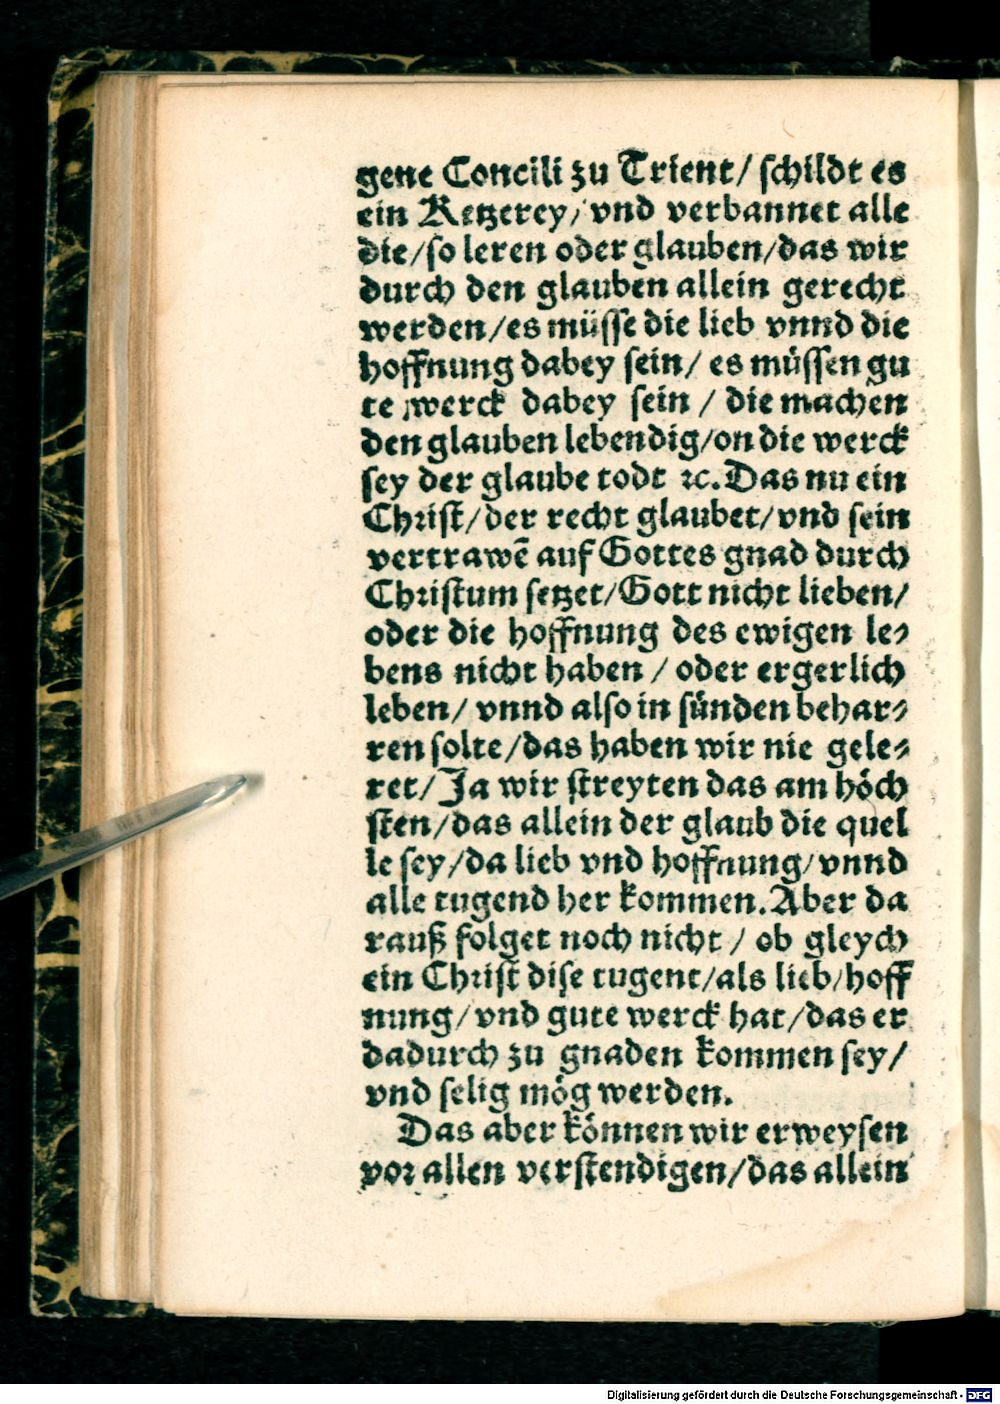 gene Concili zu Trient/ ſchildt es
ein Ketzerey/ vnd verbannet alle
die/ſo leren oder glauben/das wir
durch den glauben allein gerecht
werden/es müſſe die lieb vnnd die
hoffnung dabey ſein/ es müſſen gu
te werck dabey ſein / die machen
den glauben lebendig/on die werck
ſey der glaube todt ꝛc. Das nu ein
Chꝛiſt/der recht glaubet/vnd ſein
vertrawē auf Gottes gnad durch
Chꝛiſtum ſetzet/Gott nicht lieben/
oder die hoffnung des ewigen le⸗
bens nicht haben / oder ergerlich
leben/ vnnd alſo in ſünden behar⸗
ren ſolte/das haben wir nie gele⸗
ret/ Ja wir ſtreyten das am höch
ſten/das allein der glaub die quel
le ſey/da lieb vnd hoffnung/vnnd
alle tugend her kommen. Aber da
rauß folget noch nicht / ob gleych
ein Chꝛiſt diſe tugent/als lieb/hoff
nung/vnd gute werck hat/das er
dadurch zu gnaden kommen ſey/
vnd ſelig mög werden.
Das aber können wir erweyſen
voꝛ allen verſtendigen/das allein
Digitalisierung gefördert durch die Deutsche Forschungsgemeinschaft - DFG